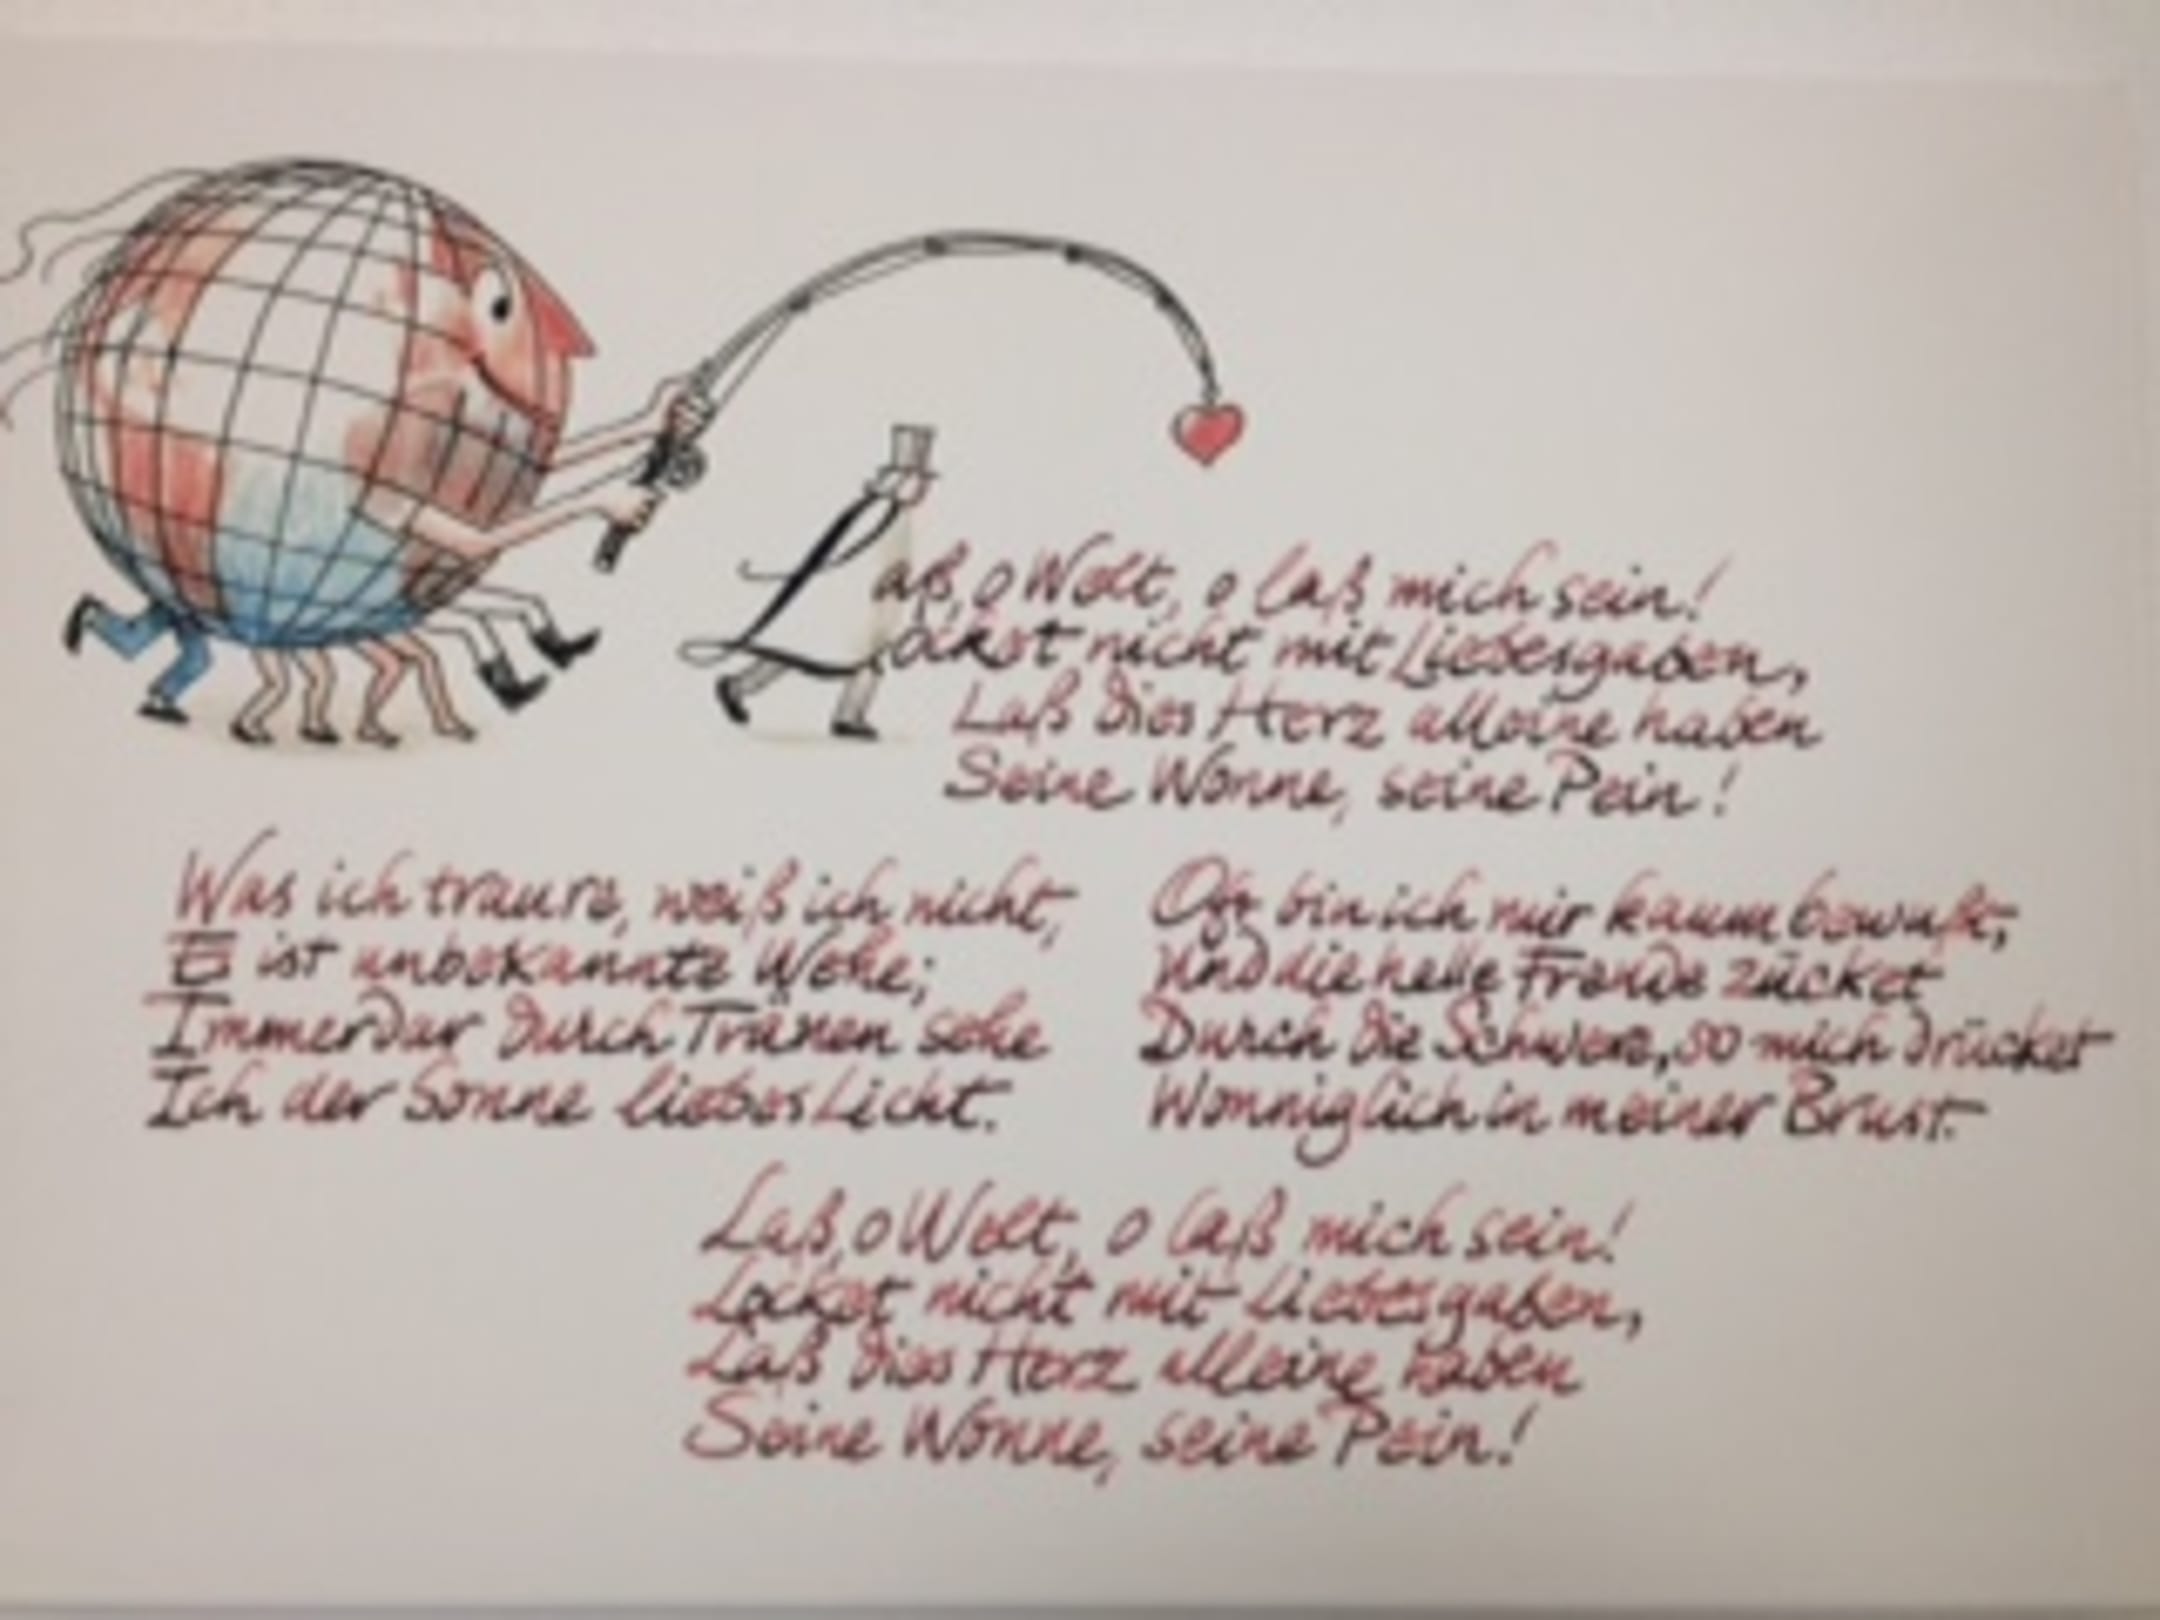 Laß, o Welt, o laß mich sein!
Locket nicht mit Liebesgaben,
Laß dies Herz alleine haben
Seine Wonne, seine Pein!
Was ich traure, weiß ich nicht,
Es ist unbekanntes Wehe;
Immerdar durch Tränen sehe
Ich der Sonne liebes Licht.
Oft bin ich mir kaum bewußt,
Und die helle Freude zücket
Durch die Schwere, so mich drücket
Wonniglich in meiner Brust.
Laß, o Welt, o laß mich sein!
Locket nicht mit Liebesgaben,
Laß dies Herz alleine haben
Seine Wonne, seine Pein!